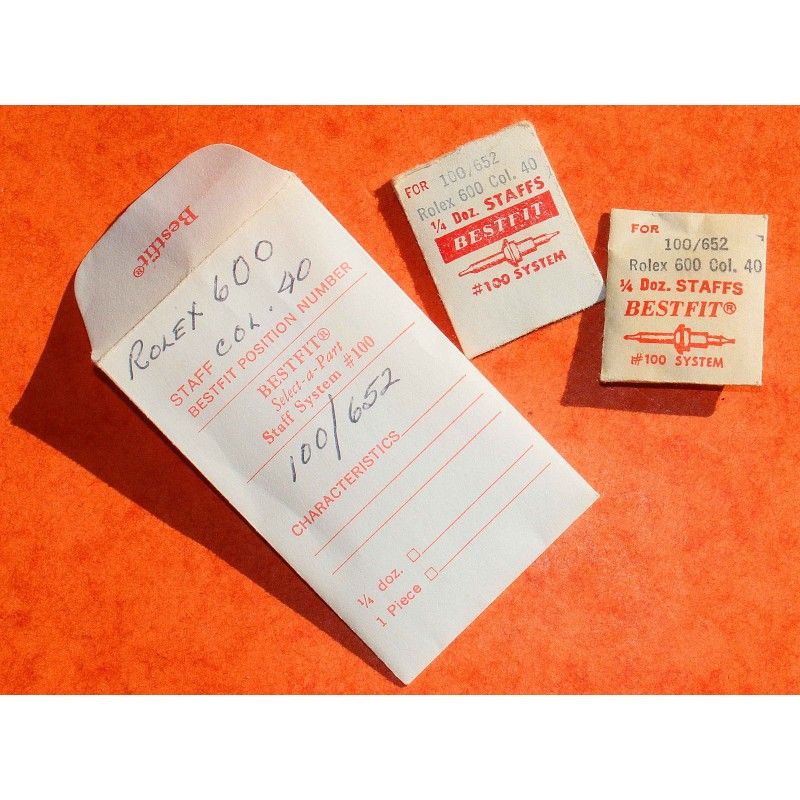 Bestfit®
ROLEX 600
COL. 40
STAFF
BESTFIT POSITION NUMBER
BESTFIT®
Select-a-Part
Staff System #100
100/652
CHARACTERISTICS
1/4 doz. □
1 Piece □
FOR 100/652
Rolex 600 Col. 40
1/4 Doz. STAFFS
BESTFIT
#100 SYSTEM
FOR
100/652
Rolex 600 Col. 40
1/4 Doz. STAFFS
BESTFIT®
#100 SYSTEM